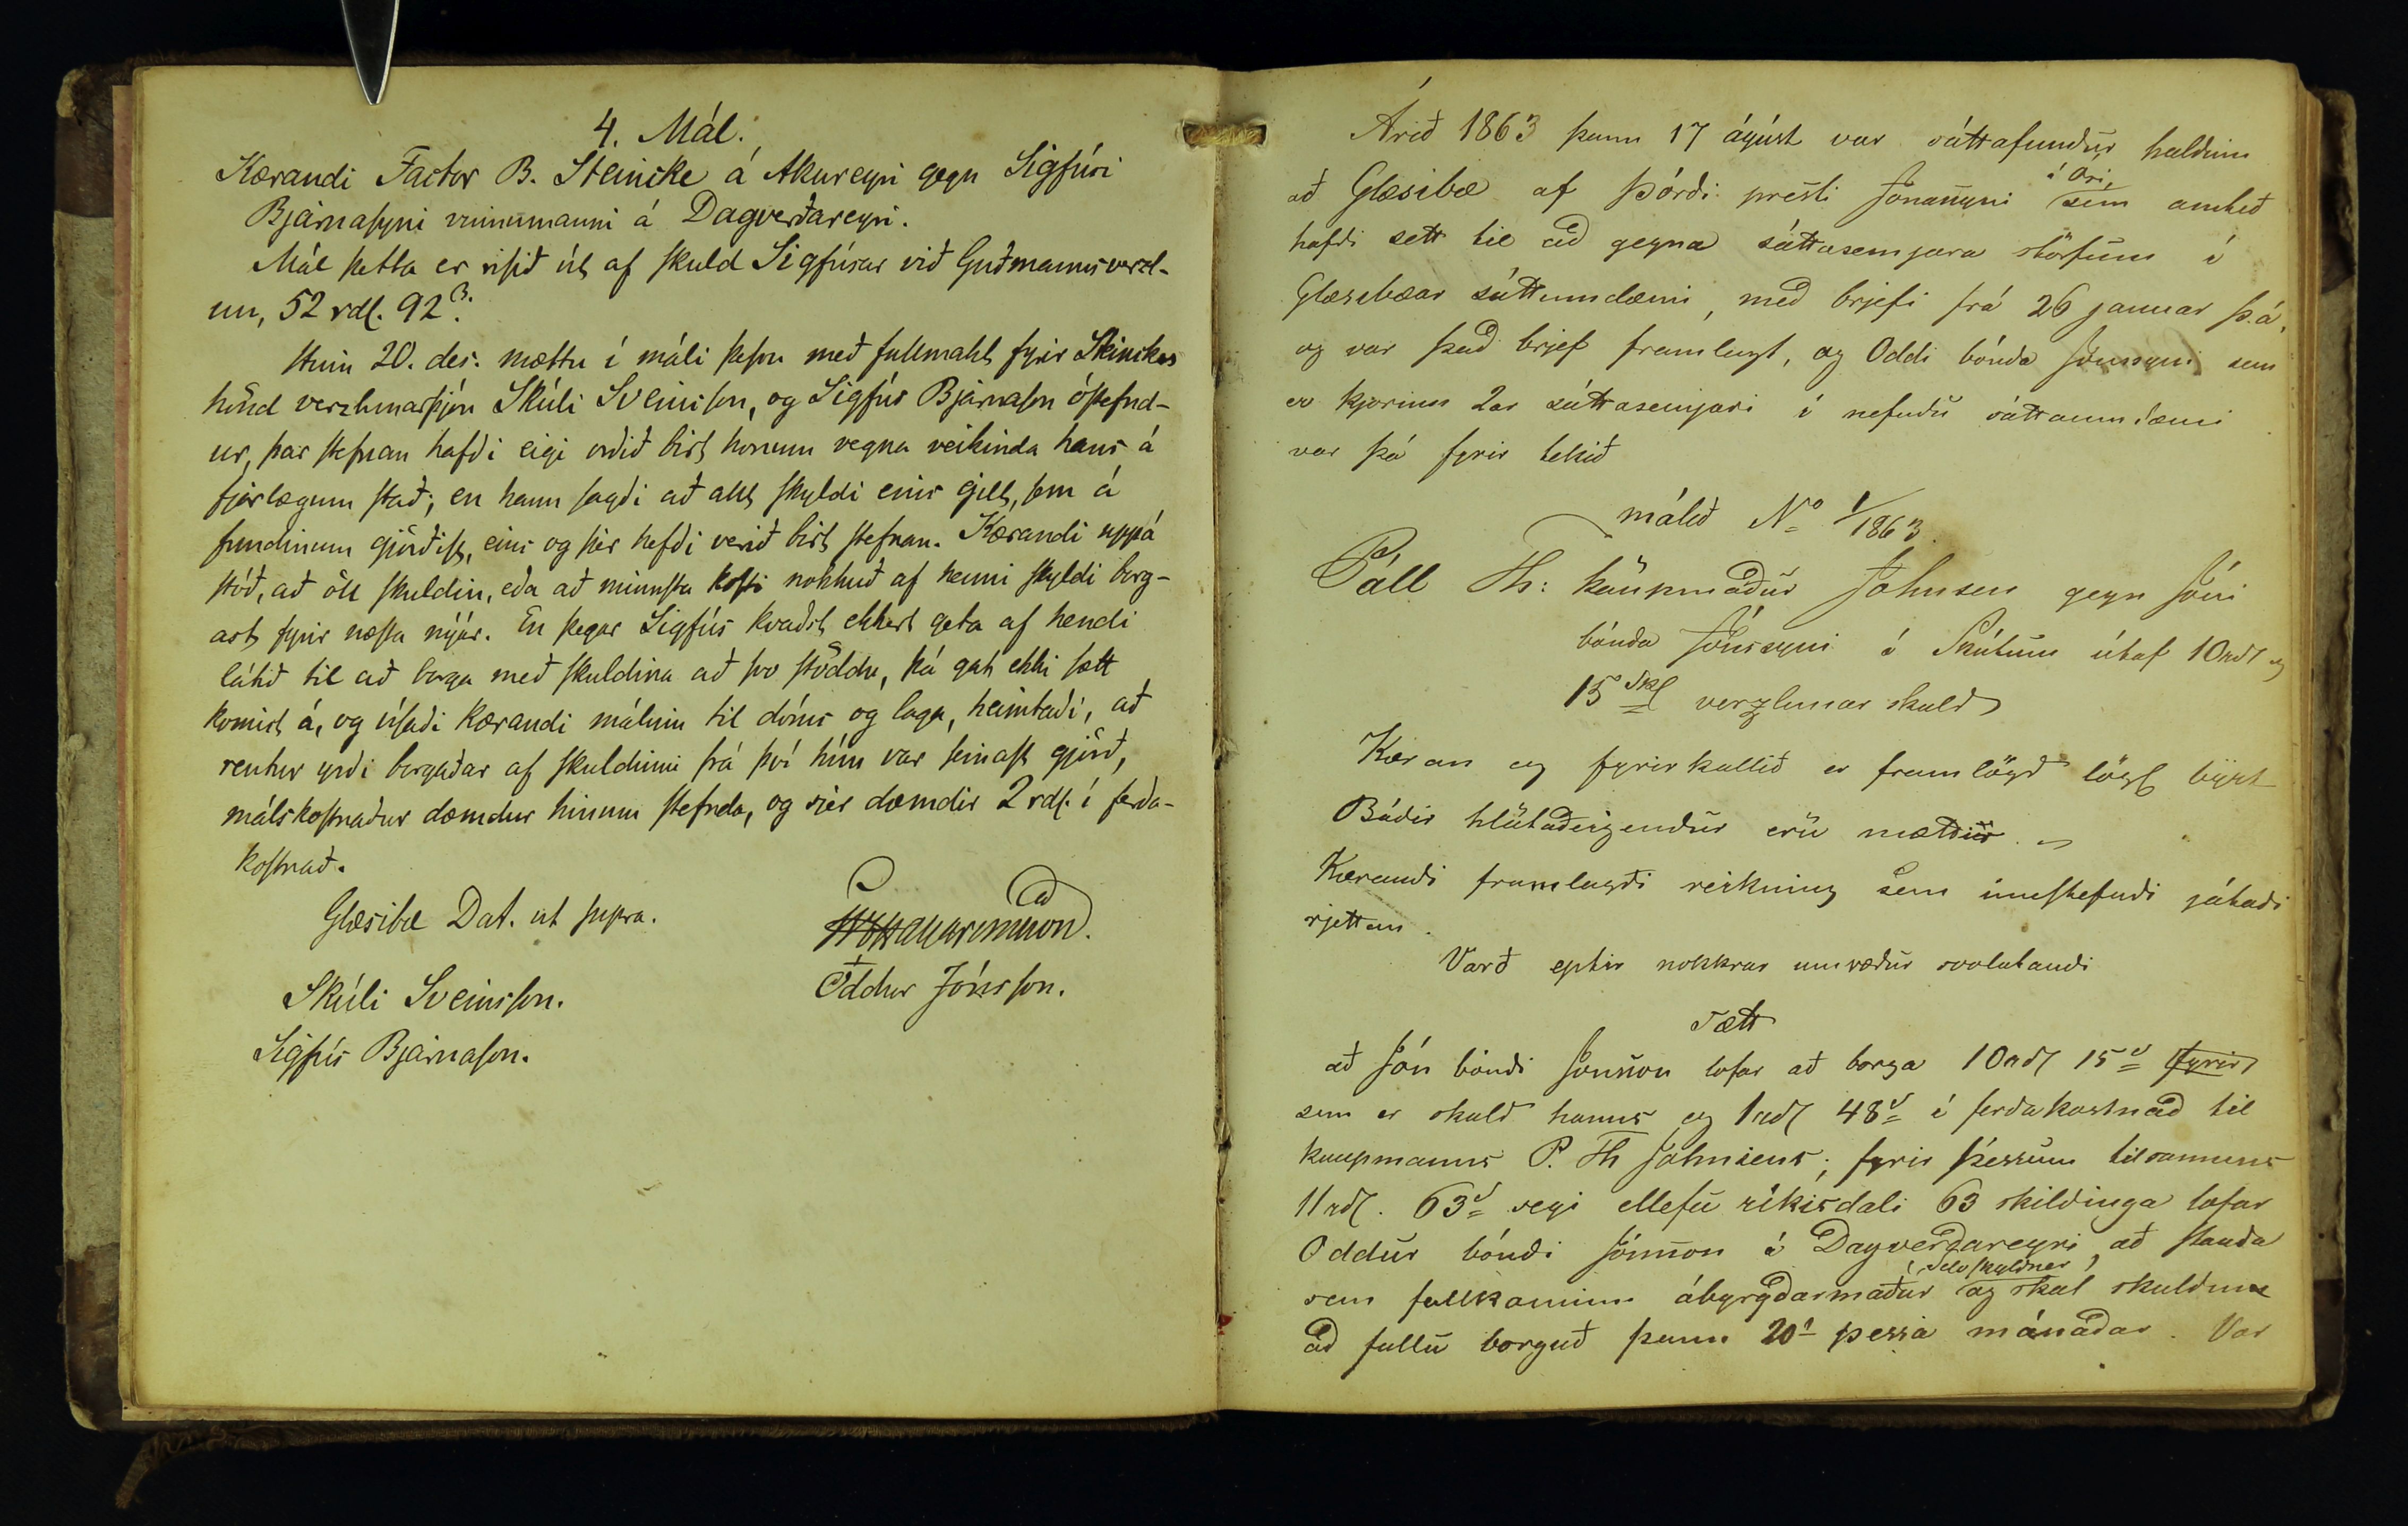 4. Mál.
Kærandi Factor B. Steincke á Akureyri gegn Sigfúsi
Bjarnasyni vinnumanni á Dagverðareyri.
Mál þetta er risið út af skuld Sigfúsar við Guðmannsverzl-
un, 52 rdl. 92 ß.
Hinn 20. des. mættu í máli þessu með fullmakt fyrir Steinckes
hönd verzlunarþjón Skúli Sveinsson, og Sigfús Bjarnason óstefnd-
ur, þar stefnan hafði eigi orðið birt honum vegna veikinda hans á
fjærlægum stað; en hann sagði að allt skyldi eins gilt, sem á
fundinum gjörðist, eins og sér hefði verið birt stefnan. Kærandi uppá
stóð, að öll skuldin, eða að minnsta kosti nokkuð af henni skyldi borg-
ast fyrir næsta nýár. En þegar Sigfús kvaðst ekkert geta af hendi
látið til að borga með skuldina að svo stöddu, þá gat ekki sætt
komist á, og vísaði kærandi málinu til dóms og laga, heimtaði, að
rentur yrði borgaðar af skuldinni frá því hún var seinast gjörð,
málskostnaður dæmdur hinum stefnda, og sjer dæmdir 2 rdl. í ferða-
kostnað.
Glæsibæ Dat. ut supra.
Oddur Jónsson.
Skúli Sveinsson.
Sigfús Bjarnason.
Árið 1863 þann 17 ágúst var sáttafundur haldinn
að Glæsibæ af Þórði presti Jónassyni sem amtið
hafði sett til að gegna sáttasemjara störfum í
Glæsibæar sáttaumdæmi, með brjefi frá 26 januar þ.á.
og var það brjef framlagt, og Oddi bónda Jónssyni sem
er kjörinn 2ar sáttasemjari í nefndu sáttaumdæmi
var þá fyrir tekið
málið No 1/1863.
Páll Th: kaupmaður Johnsen gegn Jóni
bónda Jónssyni á Skútum útaf 10rdl og
15 skl verzlunar skuld
Kæran og fyrirkallið er framlögð lögl byrt
Báðir hlutaðeigendur eru mættir.
Kærandi framlagði reikning sem innstefndi játaði
rjettan.
Varð eptir nokkrar umræður svolatandi
sætt
að Jón bóndi Jónsson lofar að borga 10rdl 15s fyrir
sem er skuld hanns og 1rdl 48s í ferðakostnað til
kaupmanns P. Th Johnsens; fyrir þessum tilsammens
11rdl. 63s segi ellefu ríkisdali 63 skildinga lofar
Oddur bóndi Jónsson á Dagverðareyri, að standa
selvskyldner
sem fullkominn ábyrgðarmaður og skal skuldin
að fullu borguð þann 20s þessa mánaðar. Var